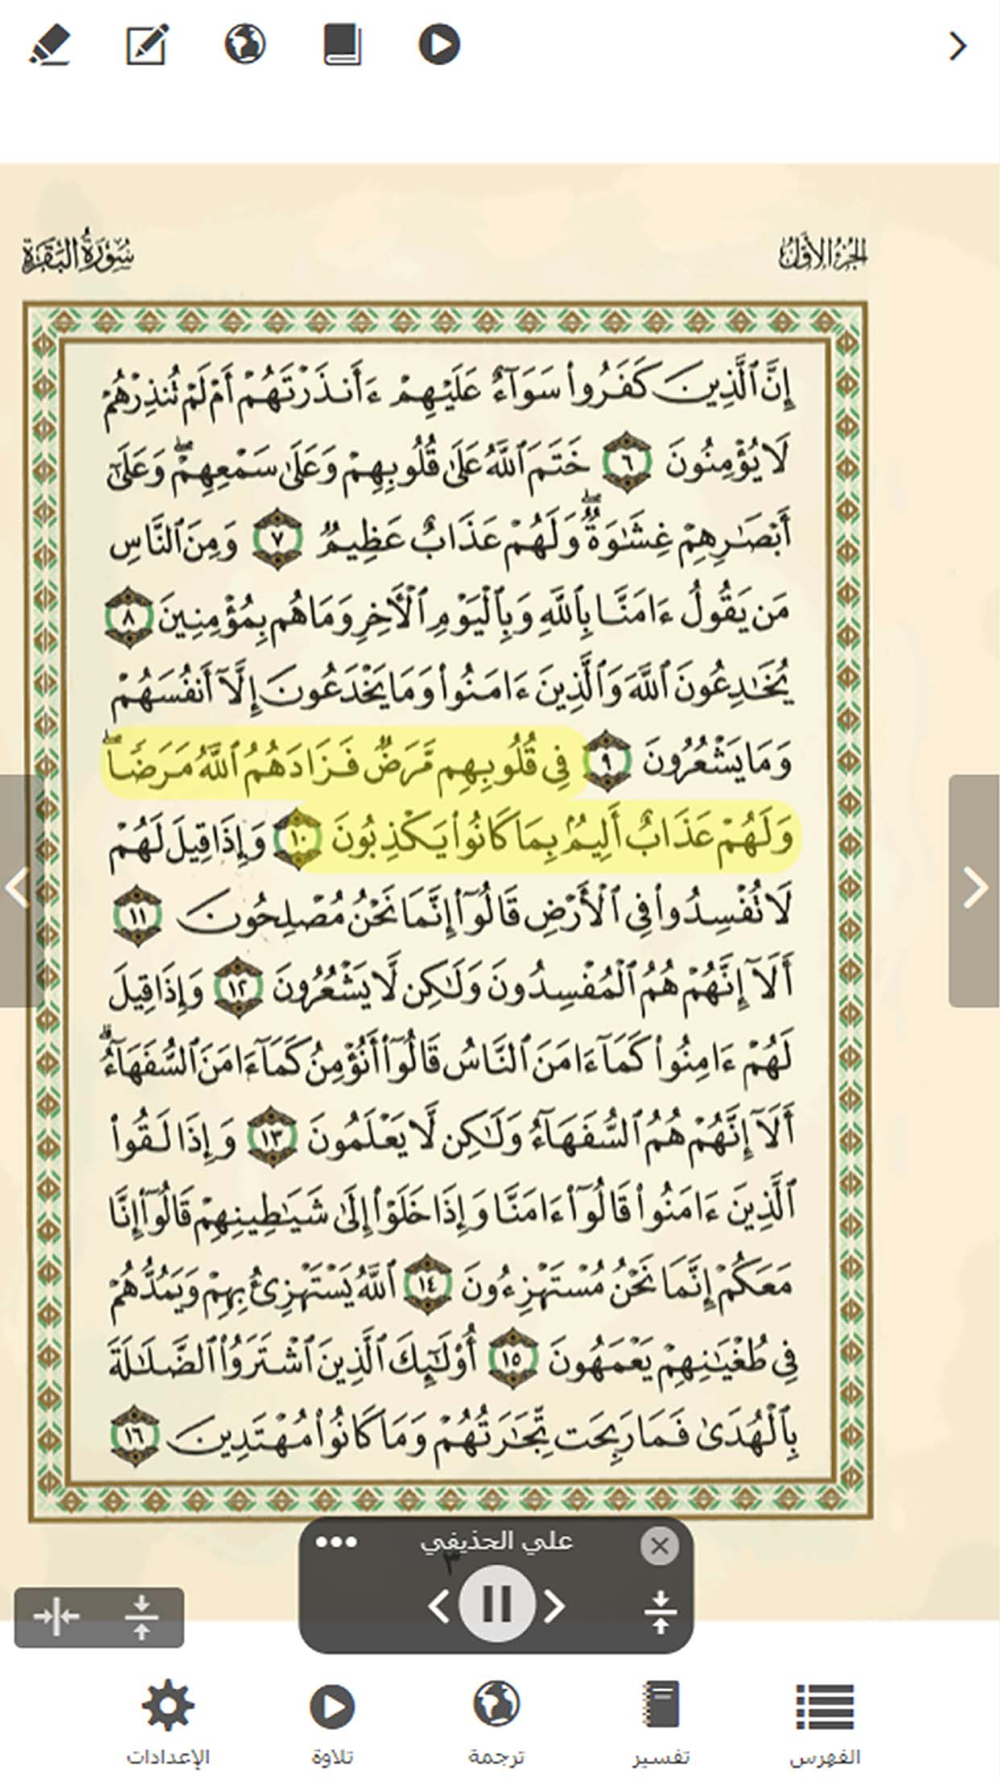 الجزء الأول
سورة البقرة
إِنَّ ٱلَّذِينَ كَفَرُوا۟ سَوَآءٌ عَلَيْهِمْ ءَأَنذَرْتَهُمْ أَمْ لَمْ تُنذِرْهُمْ
لَا يُؤْمِنُونَ ٦ خَتَمَ ٱللَّهُ عَلَىٰ قُلُوبِهِمْ وَعَلَىٰ سَمْعِهِمْ ۖ وَعَلَىٰٓ
أَبْصَـٰرِهِمْ غِشَـٰوَةٌ ۖ وَلَهُمْ عَذَابٌ عَظِيمٌ ٧ وَمِنَ ٱلنَّاسِ
مَن يَقُولُ ءَامَنَّا بِٱللَّهِ وَبِٱلْيَوْمِ ٱلْـَٔاخِرِ وَمَا هُم بِمُؤْمِنِينَ ٨
يُخَـٰدِعُونَ ٱللَّهَ وَٱلَّذِينَ ءَامَنُوا۟ وَمَا يَخْدَعُونَ إِلَّآ أَنفُسَهُمْ
وَمَا يَشْعُرُونَ ٩ فِى قُلُوبِهِم مَّرَضٌ فَزَادَهُمُ ٱللَّهُ مَرَضًا ۖ
وَلَهُمْ عَذَابٌ أَلِيمٌۢ بِمَا كَانُوا۟ يَكْذِبُونَ ١٠ وَإِذَا قِيلَ لَهُمْ
لَا تُفْسِدُوا۟ فِى ٱلْأَرْضِ قَالُوٓا۟ إِنَّمَا نَحْنُ مُصْلِحُونَ ١١
أَلَآ إِنَّهُمْ هُمُ ٱلْمُفْسِدُونَ وَلَـٰكِن لَّا يَشْعُرُونَ ١٢ وَإِذَا قِيلَ
لَهُمْ ءَامِنُوا۟ كَمَآ ءَامَنَ ٱلنَّاسُ قَالُوٓا۟ أَنُؤْمِنُ كَمَآ ءَامَنَ ٱلسُّفَهَآءُ ۗ
أَلَآ إِنَّهُمْ هُمُ ٱلسُّفَهَآءُ وَلَـٰكِن لَّا يَعْلَمُونَ ١٣ وَإِذَا لَقُوا۟
ٱلَّذِينَ ءَامَنُوا۟ قَالُوٓا۟ ءَامَنَّا وَإِذَا خَلَوْا۟ إِلَىٰ شَيَـٰطِينِهِمْ قَالُوٓا۟ إِنَّا
مَعَكُمْ إِنَّمَا نَحْنُ مُسْتَهْزِءُونَ ١٤ ٱللَّهُ يَسْتَهْزِئُ بِهِمْ وَيَمُدُّهُمْ
فِى طُغْيَـٰنِهِمْ يَعْمَهُونَ ١٥ أُو۟لَـٰٓئِكَ ٱلَّذِينَ ٱشْتَرَوُا۟ ٱلضَّلَـٰلَةَ
بِٱلْهُدَىٰ فَمَا رَبِحَت تِّجَـٰرَتُهُمْ وَمَا كَانُوا۟ مُهْتَدِينَ ١٦
علي الحذيفي
٣
الفهرس
تفسير
ترجمة
تلاوة
الإعدادات